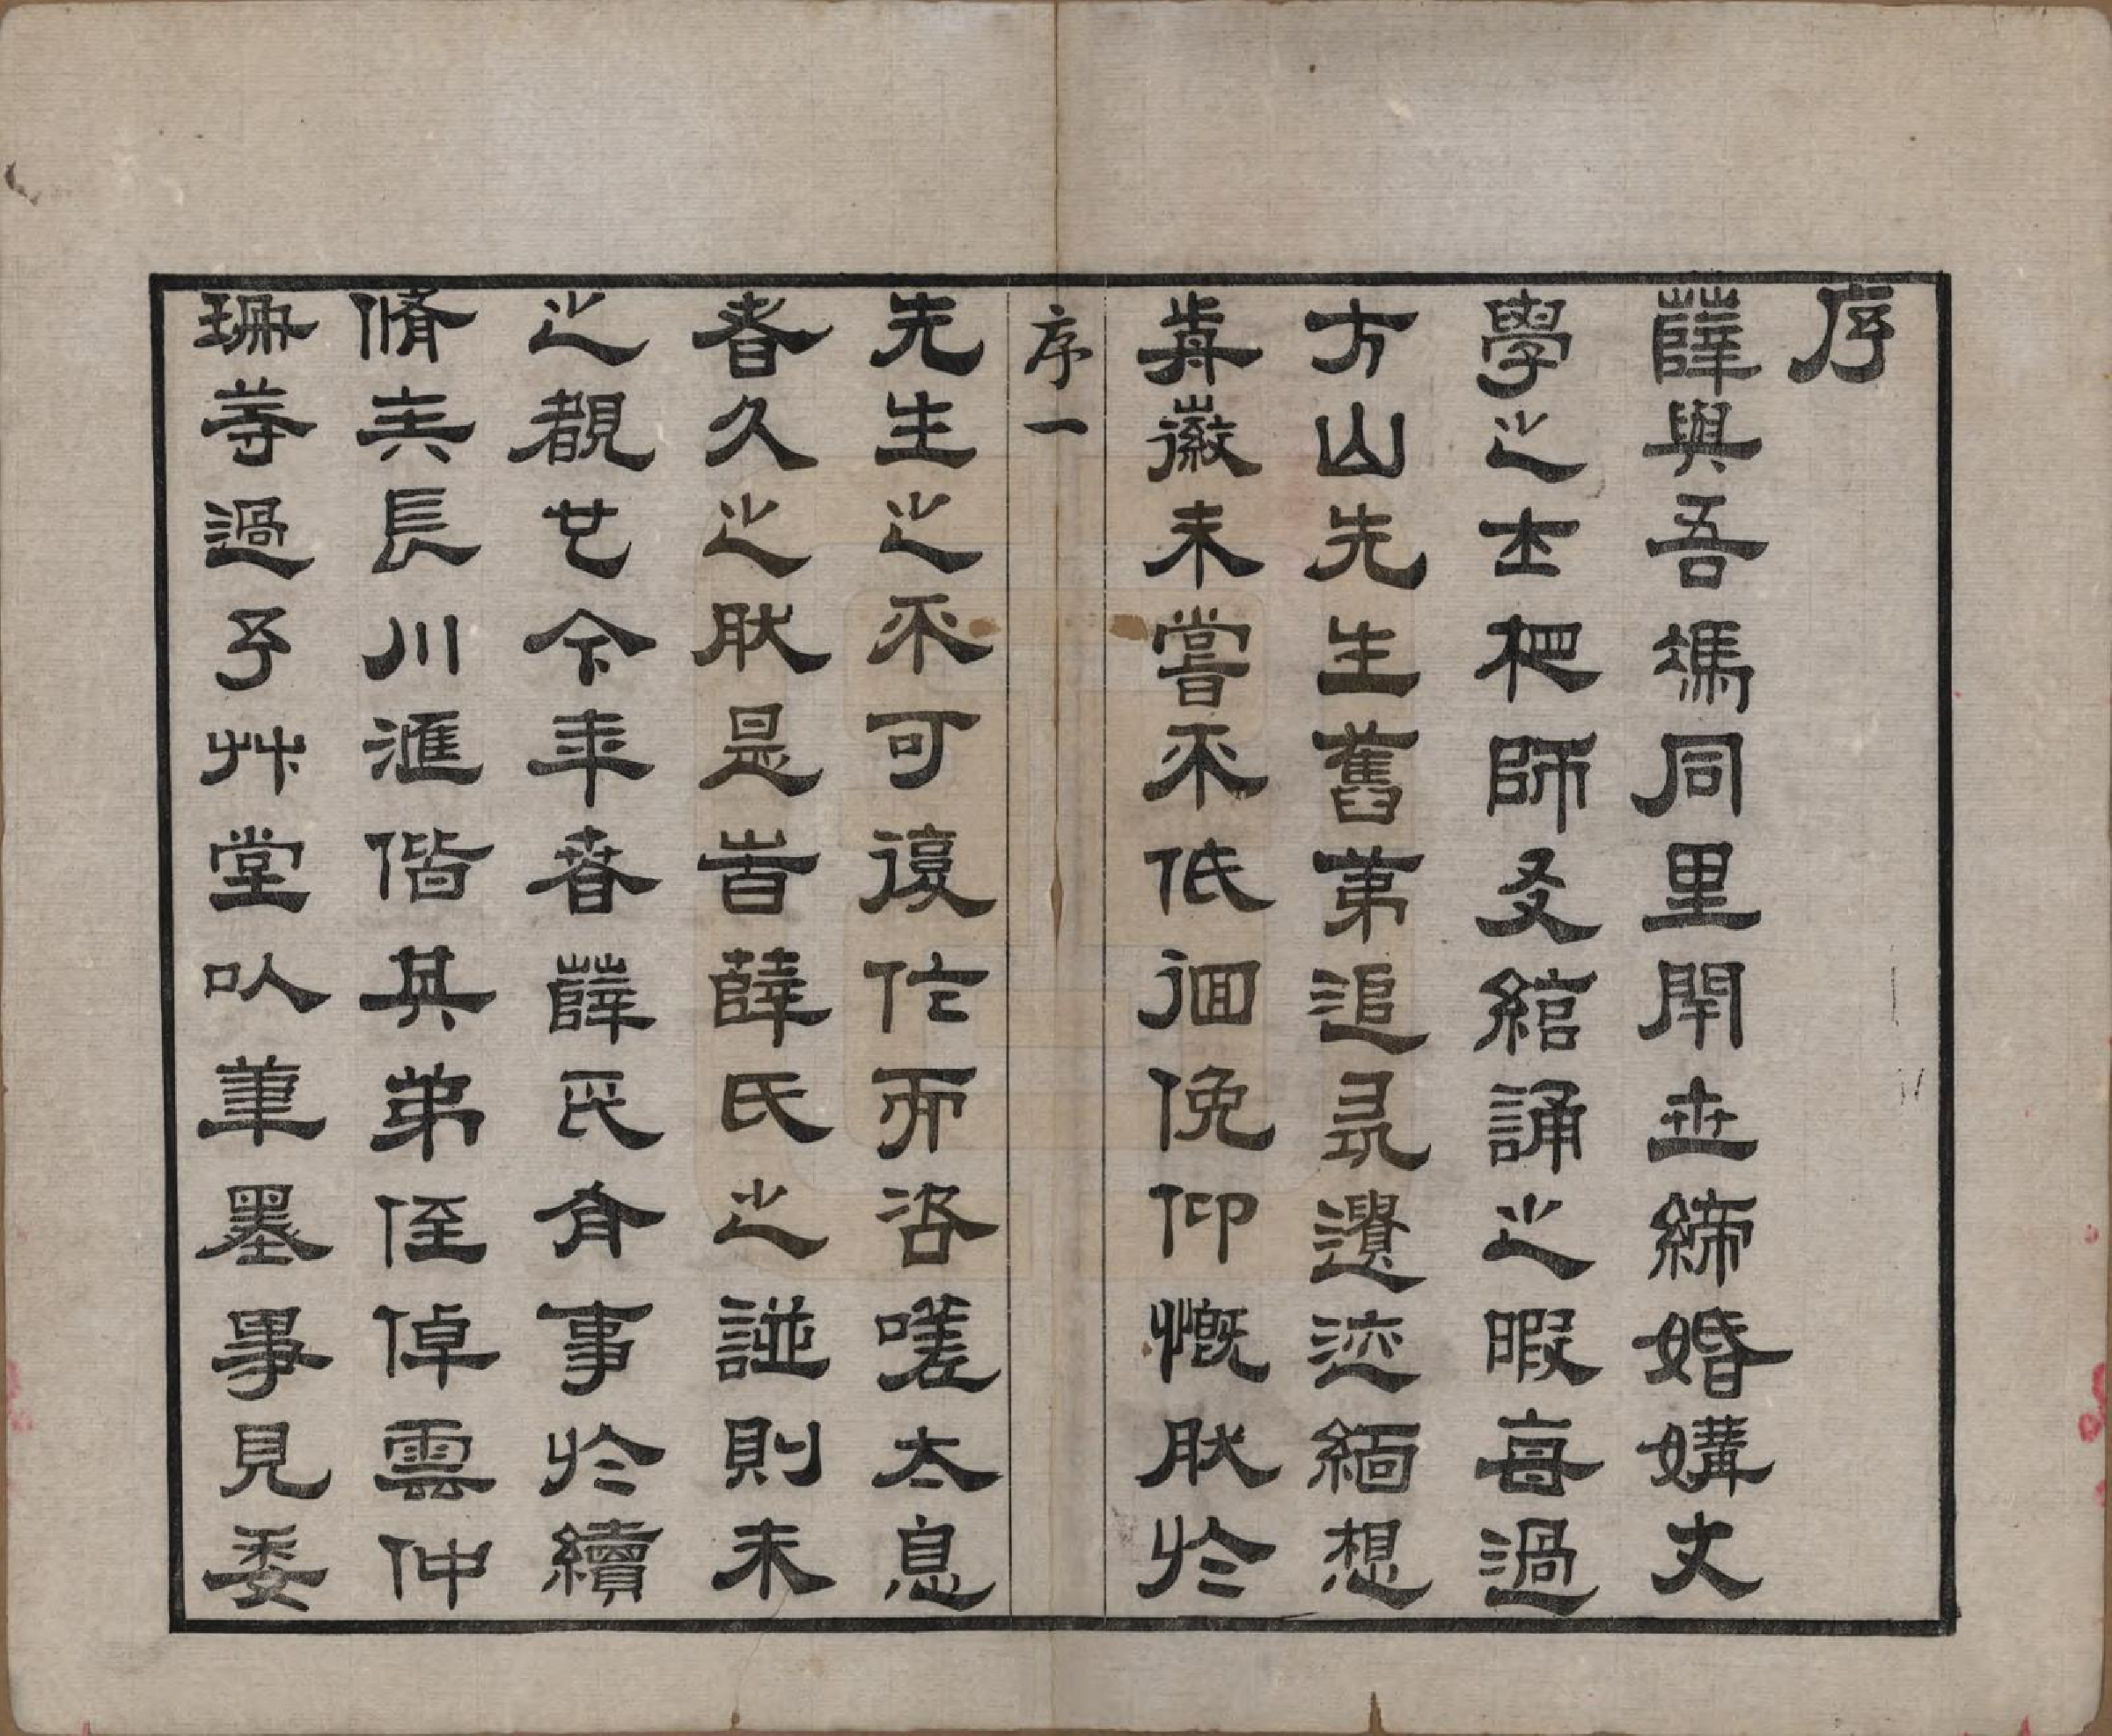 序
薛與吾馮同里閈世締婚媾文
學之士師友綰誦之暇每過
方山先生舊第追尋遺迹緬想
前徽未嘗不低徊俛仰慨然於
序一
先生之不可復作而咨嗟太息
者久之然是旹薛氏之譜則未
之覩也今年春薛氏有事於續
脩長川滙偕其弟侄倬雲仲
珊等過予艸堂以筆墨事見委